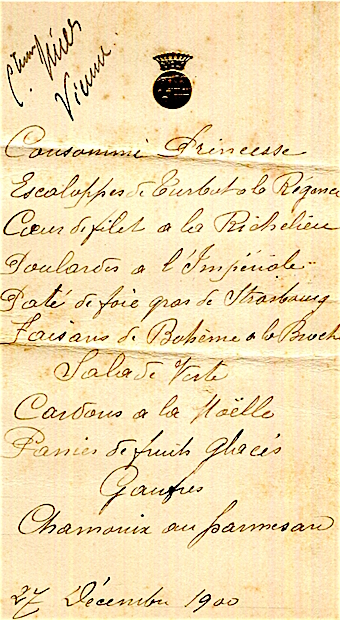 Vienne.
Consommé Princesse
Escaloppes de Turbot a la Régence
Cœur de filet a la Richelieu
Poulardes a l'Impériale
Paté de foie gras de Strasbourg
Faisans de Bohème a la Broche
Salade Verte
Cardons a la Moëlle
Panier de fruits glacés
Gaufres
Chamonix au parmesan
27 Décembre 1900